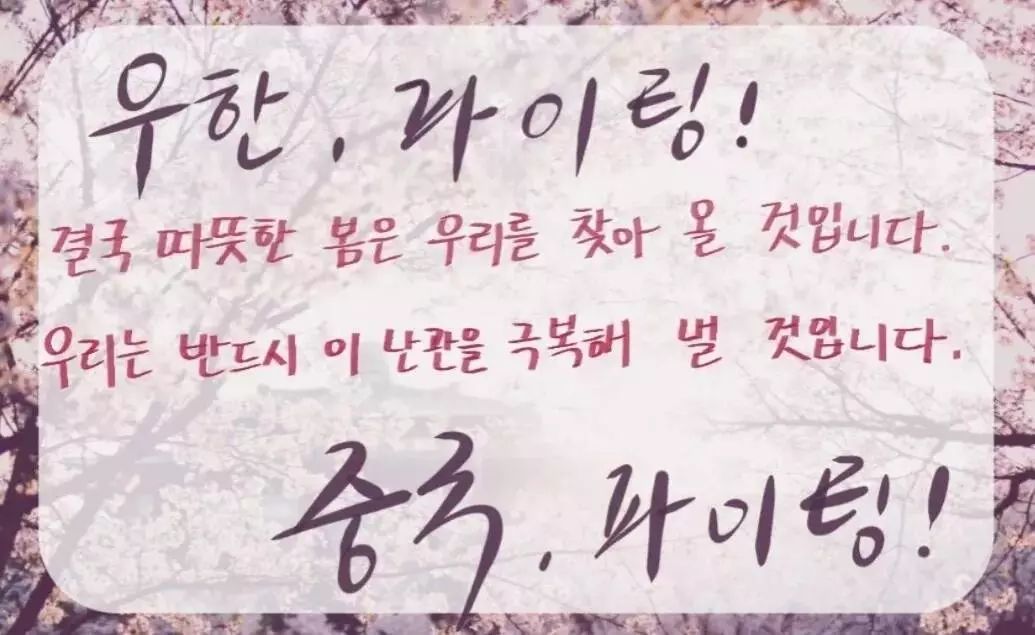 우한, 파이팅!
결국 따뜻한 봄은 우리를 찾아 올 것입니다.
우리는 반드시 이 난관을 극복해 낼 것입니다.
중국, 파이팅!